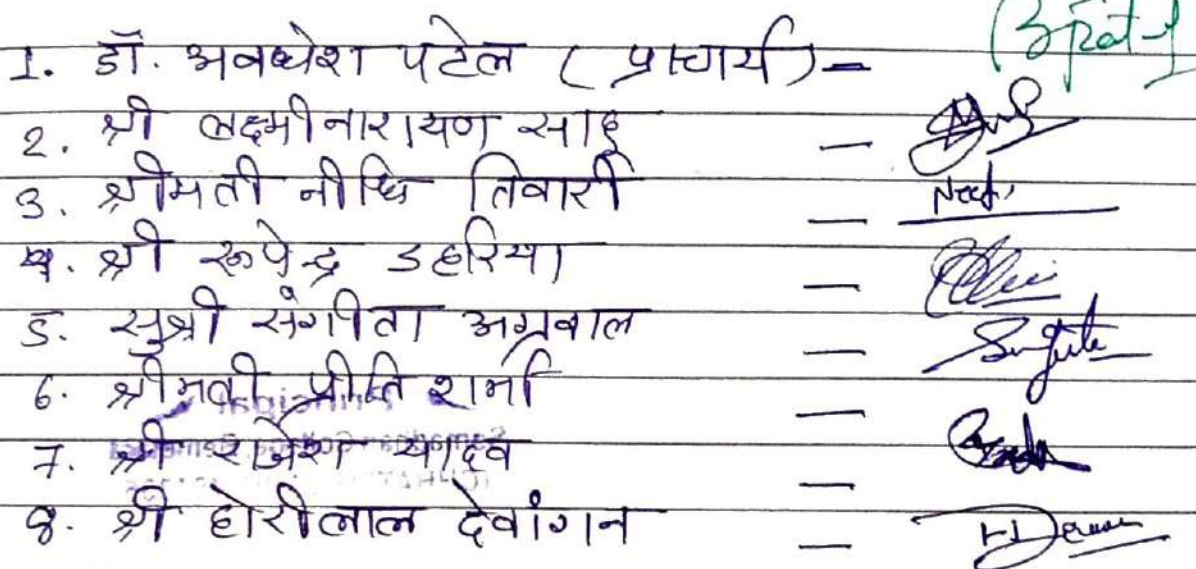 1. डॉ. अवधेश पटेल ( प्राचार्य ) -
2. श्री लक्ष्मीनारायण साहू -
3. श्रीमती नीधि तिवारी -
4. श्री रूपेन्द्र डहरिया -
5. सुश्री संगीता अग्रवाल -
6. श्रीमती प्रीति शर्मा -
7. श्री राजेश यादव -
8. श्री होरीलाल देवांगन -